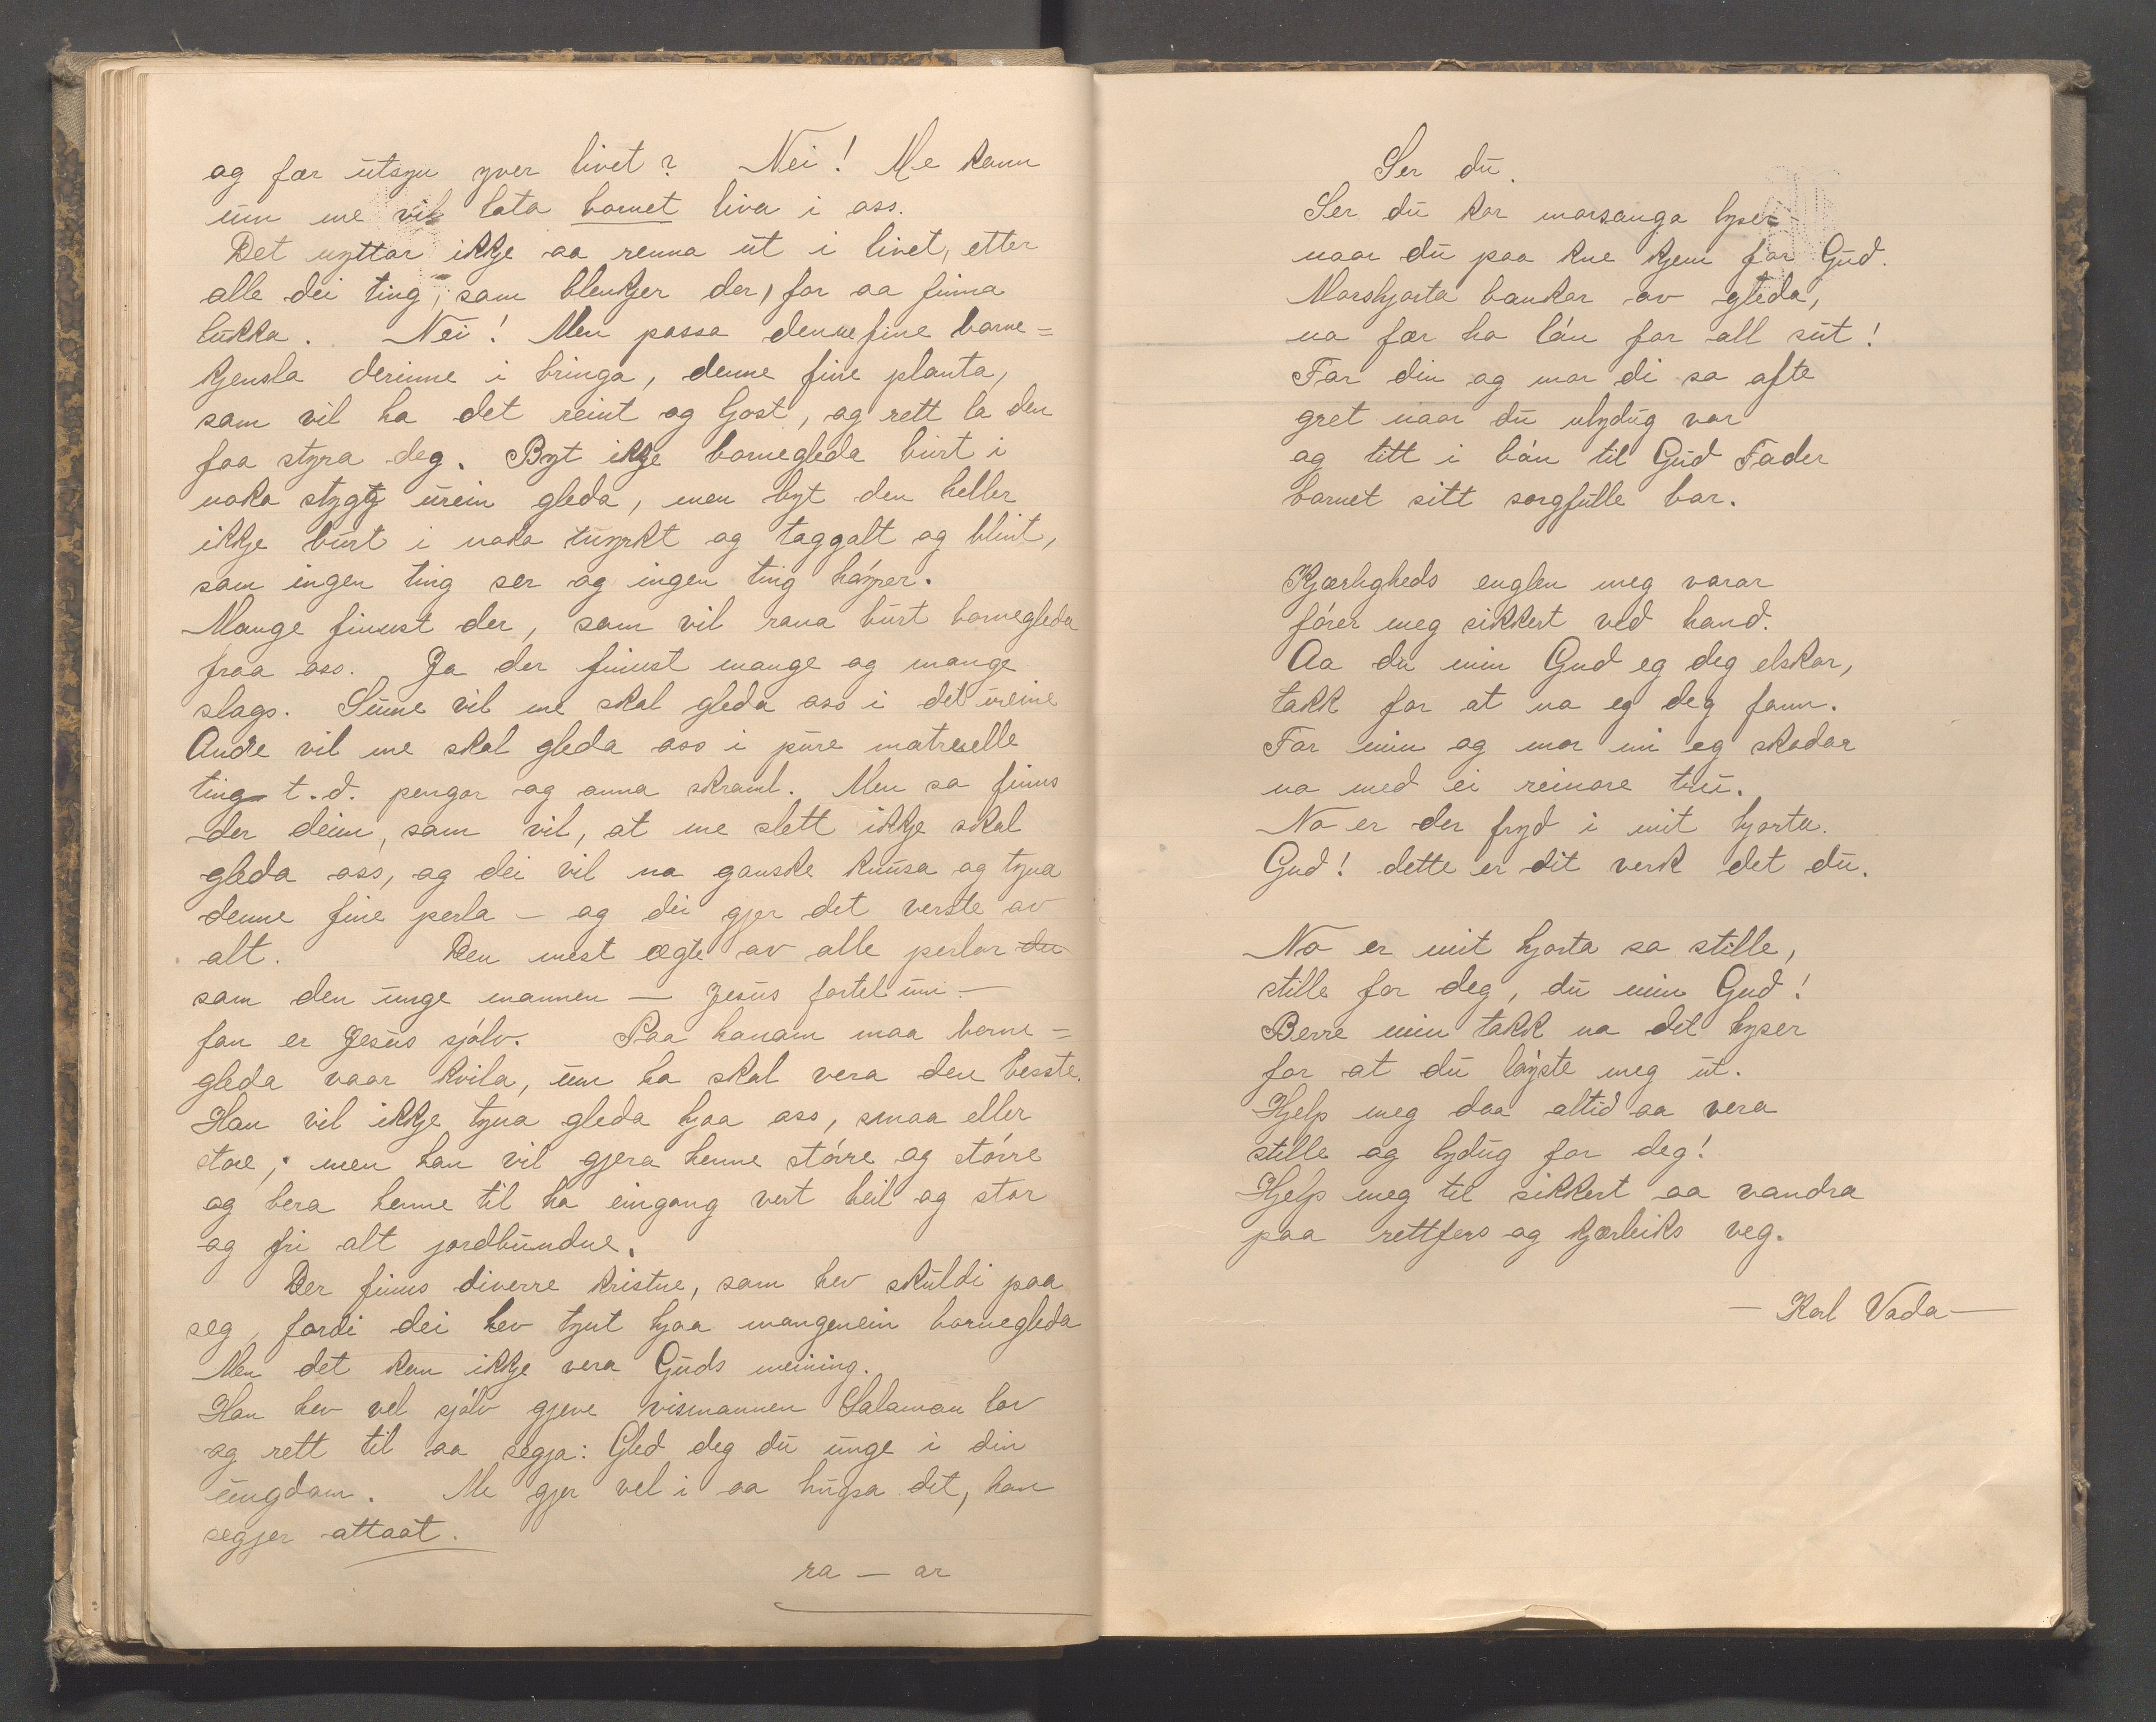 og fær utsyn yver livet? Nei! Me kann
um me vil lata barnet liva i oss.
Det nyttar ikkje aa renna ut i livet, etter
alle dei ting, som blenkjer der, for aa finna
lukka. Nei! Men passa denne fine barne=
kjensla derinne i bringa, denne fine planta,
som vil ha det reint og ljost, og rett la den
faa styra deg. Byt ikkje barnegleda burt i
noko stygg urein gleda, men byt den heller
ikkje burt i noko tunykt og taggatt og blint,
som ingen ting ser og ingen ting høyrer.
Mange finnst der, som vil rana burt barnegleda
fraa oss. Ja der finnst mange og mange
slags. Sume vil me skal gleda oss i det ureine
Andre vil me skal gleda oss i pure matrielle
ting t.d. pengar og anna skraml. Men so finns
der deim, som vil, at me slett ikkje skal
gleda oss, og dei vil no ganske knusa og tyna
denne fine perla – og dei gjer det verste av
alt. Den mest ægte av alle perlor du
som den unge mannen – Jesus fortel um –
fan er Jesus sjølv. Paa honom maa barne=
gleda vaar kvila, um ho skal vera den besste.
Han vil ikkje tyna gleda hjaa oss, smaa eller
store; men han vil gjera henne større og større
og bera henne til ho eingong vert heil og stor
og fri alt jordbundne.
Der finns diverre kristne, som hev skuldi paa
seg, fordi dei hev tynt hjaa mangenein barnegleda
Men det kan ikkje vera Guds meining.
Han hev vel sjølv gjeve vismannen Salamon lov
og rett til aa segja: Gled deg du unge i din
ungdom. Me gjer vel i aa hugsa det, han
segjer attaat.
ra – ar
Ser du.
Ser du kor morsauga lyser
naar du paa kne kjem for Gud.
Morshjarta bankar av gleda,
no fær ho løn for all sut!
Far din og mor di so ofte
gret naar du ulydug var
og titt i bøn til Gud Fader
barnet sitt sorgfulle bar.
Kjærligheds englen meg varar
fører meg sikkert ved hand.
Aa du min Gud eg deg elskar,
takk for at no eg deg fann.
Far min og mor mi eg skodar
no med ei reinare tru.
No er der fryd i mit hjarta.
Gud! dette er dit verk det du.
No er mit hjarta so stille,
stille for deg, du min Gud!
Berre min takk no det lyser
for at du løyste meg ut.
Hjelp meg daa altid aa vera
stille og lydug for deg!
Hjelp meg til sikkert aa vandra
paa rettferd og kjærleiks veg.
– Karl Vada –